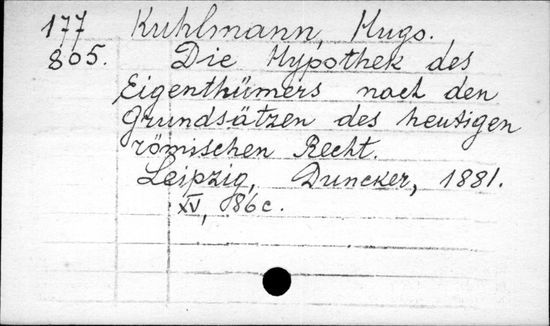 177 Kuhlmann, Hugo.
805. Die Hypothek des
Eigenthümers nach den
Grundsätzen des heutigen
römischen Recht.
Leipzig, Duncker, 1881.
XV, 86 c.